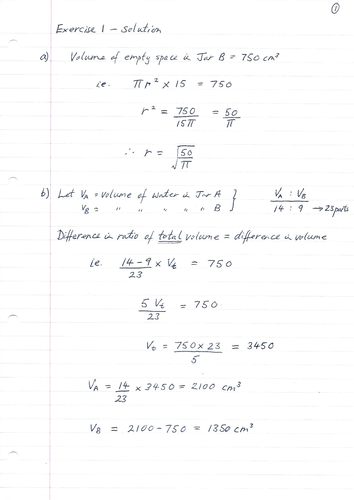 ①
Exercise 1 – Solution
a) Volume of empty space in Jar B = 750 cm³
i.e. πr² × 15 = 750
r² = 750/15π = 50/π
∴ r = √(50/π)
b) Let V_A = volume of water in Jar A } V_A : V_B
V_B = " " " " " B } 14 : 9 → 23 parts
Difference in ratio of total volume = difference in volume
i.e. (14 – 9)/23 × V_t = 750
5 V_t/23 = 750
V_0 = (750 × 23)/5 = 3450
V_A = 14/23 × 3450 = 2100 cm³
V_B = 2100 – 750 = 1350 cm³